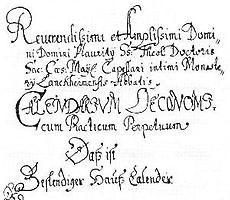 Reverendissimi et Amplissimi Domi,
ni Domini Mauritij Ss: Theol: Doctoris
Sac: Cæs: Maÿᵗ: Capellani intimi Monaste,
rÿ Lanckheimensis Abbatis
CALENDARIUM OECONOMI,
cum Practicum Perpetuum
Daß ist
Beständiger Hauß Calender